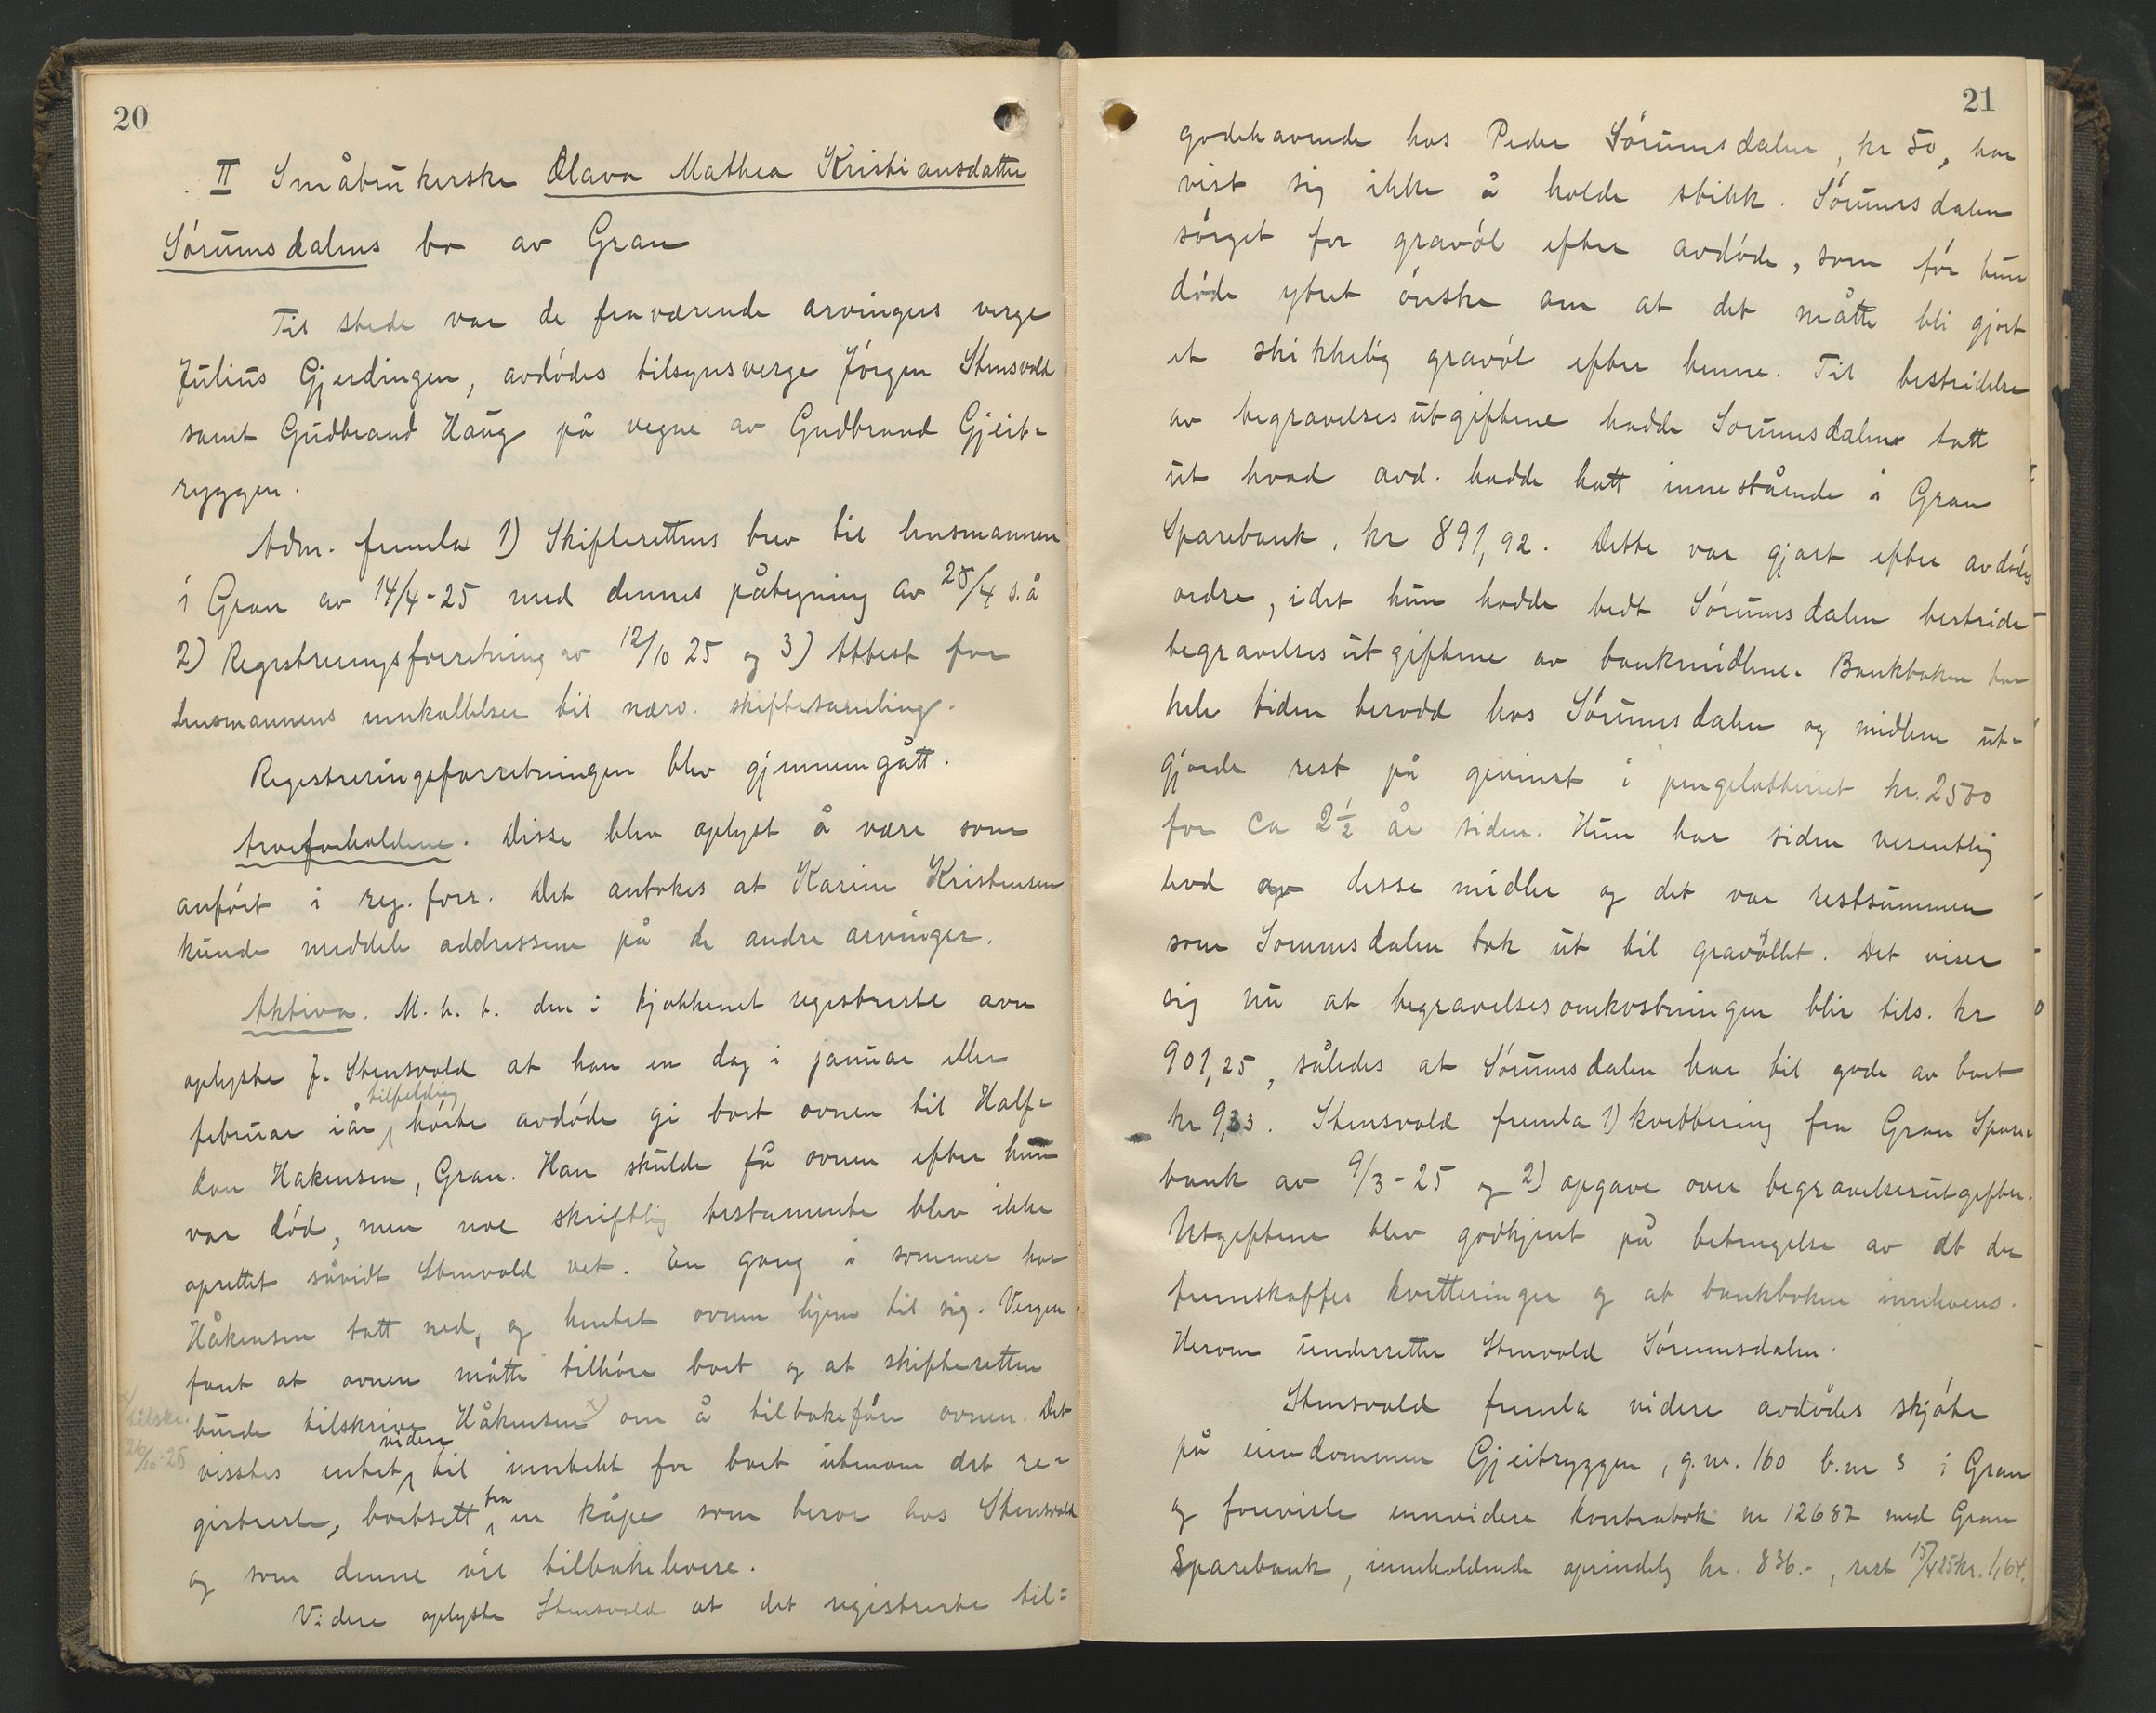 20
II Småbrukerske Olava Mathea Kristiansdatter
Sørumsdalens bo av Gran
Til stede var de fraværende arvingers verge
Julius Gjerdingen, avdødes tilsynsverge Jørgen Stensvold
samt Gudbrand Haug på vegne av Gudbrand Gjeit-
ryggen.
Adm. fremla 1) Skifterettens brev til lensmannen
i Gran av 14/4-25 med dennes påtegning av 28/4 s.å
2) Registreringsforretning av 12/10 25 og 3) Attest for
lensmannens innkallelser til nærv. skiftesamling.
Registreringsforretningen blev gjennemgått.
Arveforholdene. Disse blev oplyst å være som
anført i reg. forr. Det antokes at Karine Kristensen
kunde meddele addressene på de andre arvinger.
Aktiva. M. h. t. den i kjøkkenet registrerte ovn
oplyste J. Stensvold at han en dag i januar eller
februar iår tilfeldig hørte avdøde gi bort ovnen til Half-
dan Hakensen, Gran. Han skulde få ovnen efter hun
var død, men noe skriftlig testamente blev ikke
oprettet såvidt Stenvold vet. En gang i sommer har
Håkensen tatt ned, og hentet ovnen hjem til sig. Vergen
fant at ovnen måtte tilhøre boet og at skifteretten
burde tilskrive Håkensen x) om å tilbakeføre ovnen. Det
x/ tilskr.
26/10-25
visstes intet videre til inntekt for boet utenom det re-
gistrerte, bortsett fra en kåpe som beror hos Stensvold
og som denne vil tilbakelevere.
Videre oplyste Stensvold at det registrerte til-
21
godehavende hos Peder Sørumsdalen, kr 50, har
vist sig ikke å holde stikk. Sørumsdalen
sørget for gravøl efter avdøde, som før hun
døde ytret ønske om at det måtte bli gjort
et skikkelig gravøl efter henne. Til bestridelse
av begravelsesutgiftene hadde Sorumsdalen tatt
ut hvad avd. hadde hatt innestående i Gran
Sparebank, kr 891,92. Dette var gjort efter avdødes
ordre, idet hun hadde bedt Sørumsdalen bestride
begravelsesutgiftene av bankmidlene. Bankboken har
hele tiden berodd hos Sørumsdalen og midlene ut-
gjorde rest på gevinst i pengelotteriet kr. 2500
for ca 2 1/2 år siden. Hun har siden vesentlig
levd av desse midler og det var restsummen
som Sorumsdalen tok ut til gravøllet. Det viser
sig nu at begravelsesomkostningen blir tils. kr
901,25, således at Sørumsdalen har til gode av boet
kr 9,33. Stensvold fremla 1) kvittering fra Gran Spare-
bank av 9/3-25 og 2) opgave over begravelsesutgifter.
Utgiftene blev godkjent på betingelse av at der
fremskaffes kvitteringer og at bankboken innleveres.
Herom underretter Stenvold Sørumsdalen.
Stensvold fremla videre avdødes skjøte
på eiendommen Gjeitryggen, g.nr. 160 b.nr 3 i Gran
og foreviste ennvidere kontrabok nr 12687 med Gran
Sparebank, inneholdende oprindelig kr. 836.-, rest 15/4 25 kr. 1,64.